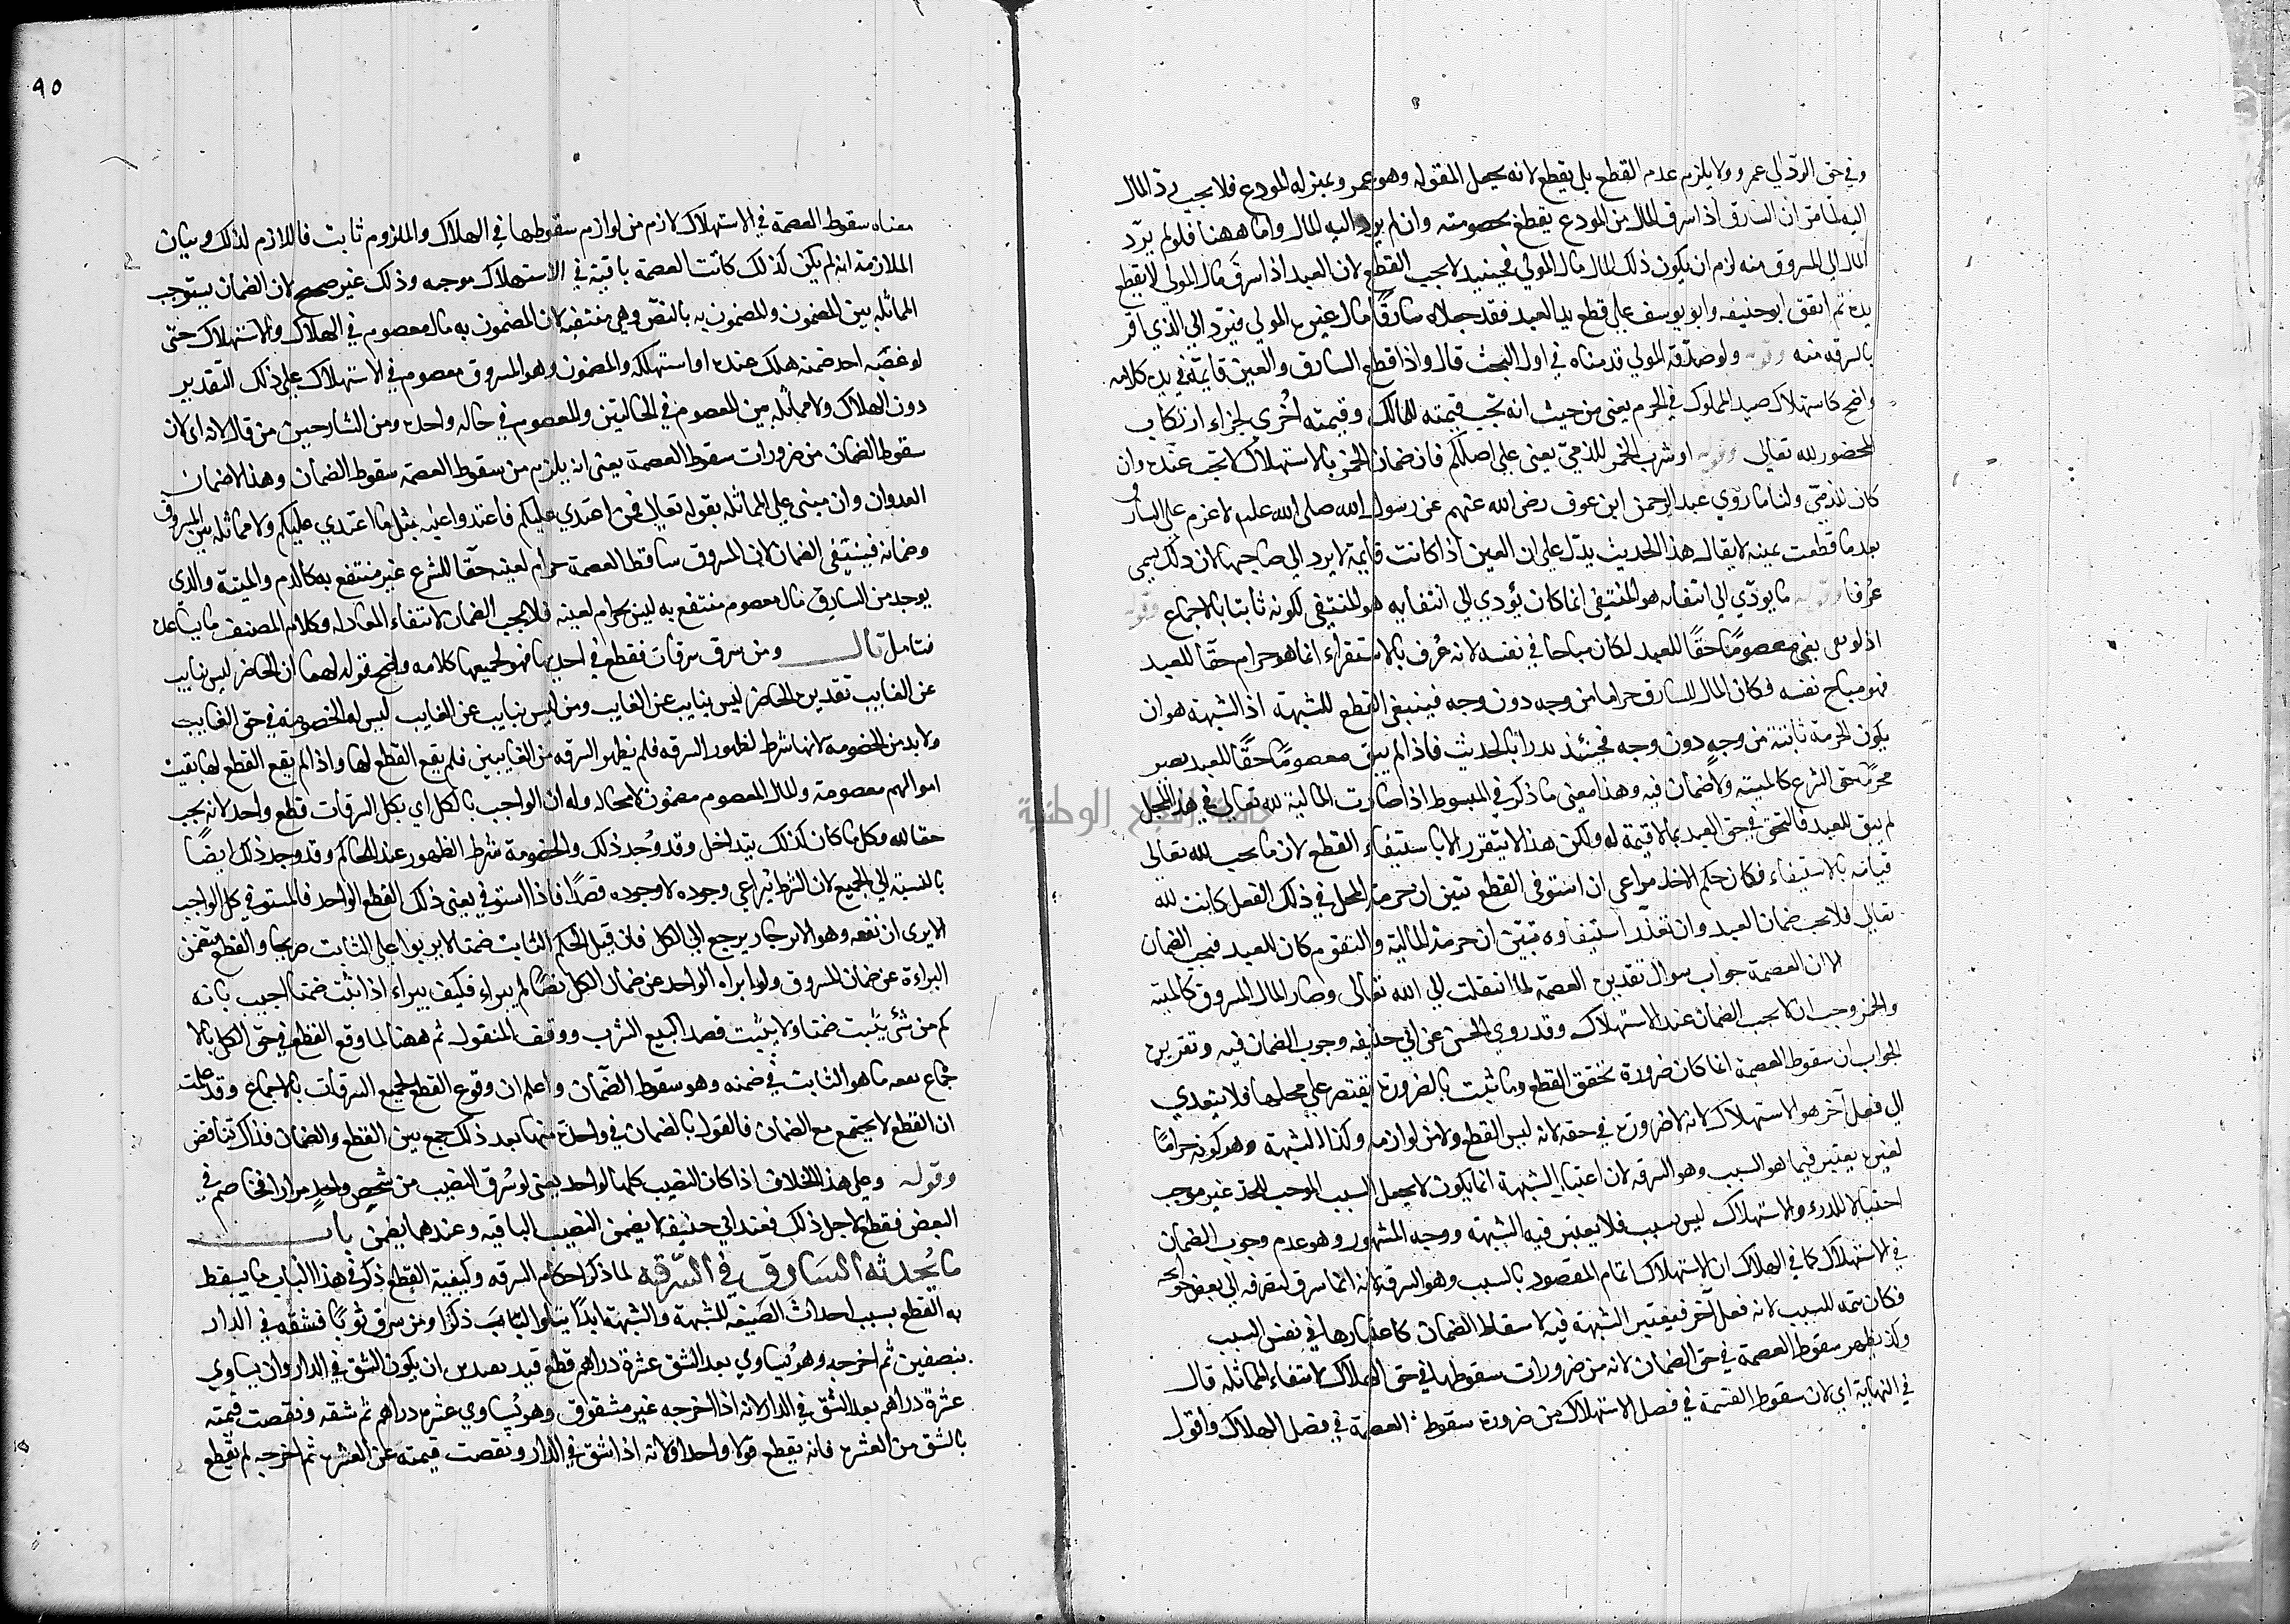 وفي حق الرد الي عمرو ولا يلزم عدم القطع بل يقطع لانه يجعل المقوله وهو عمرو بمنزله المودع فلا يجب رد المال
اليه لما مر ان السارق اذا سرق المال من المودع يقطع بخصومته وان لم يرد اليه المال واما ههنا فلو لم يرد
المال الي المسروق منه لزم ان يكون ذلك المال مال المولي فحينيد لا يجب القطع لان العبد اذا سرق مال المولي لا يقطع
يده ثم اتفق ابو حنيفه وابو يوسف علي قطع يد العبد فقد جعلاه سارقًا مال غيره المولي فيرد الي الذي اقر
بالسرقه منه وقوله ولو صدقه المولي قدمناه في اول البحث قال واذا قطع السارق والعين قايمة في يده كلامه
واضح كاستهلاك صيد المملوك في الحرم يعني من حيث انه تجب قيمته للمالك وقيمته اُخري لجزاء ارتكاب
المحضور لله تعالى وقوله او شرب الخمر للذمي يعني علي اصلكم فان ضمان الخمر بالاستهلاك لا تجب عنده وان
كان لذمي ولنا ما روي عبد الرحمن ابن عوف رضى الله عنهم عن رسول الله صلى الله عليه لا غرم علي السارق
بعد ما قطعت يمينه لا يقال هذا الحديث يدل علي ان العين اذا كانت قايمة لا يرد الي صاحبها لان ذلك يسمى
غرمًا وقوله ما يودي الي انتفائه هو المنتفي انما كان يؤدي الي انتفايه هو المنتفي لكونه ثابتا بالاجماع وقوله
اذ لو بقي معصومًا حقًا للعبد لكان مباحا في نفسه لانه عُرف بالاستقراء انما هو حرام حقًا للعبد
فهو مباح نفسه فكان المال للسارق حراما من وجه دون وجه فينتفي القطع للشبهة اذ الشبهة هو ان
يكون الحرمة ثابتة من وجهٍ دون وجه فحينئذ يدرأ بالحديث فاذا لم يبق معصومًا حقًا للعبد يصير
محرمًا حق الشرع كالميتة ولا ضمان فيه وهذا معنى ما ذكر في المبسوط اذا صارت المالية لله تعالى في هذا الفعل
لم يبق للعبد فالتحق في حق العبد بما لا قيمة له ولكن هذا لا يتقرر الا باستيفاء القطع لان ما يجب لله تعالى
قيامه بالاستيفاء فكان حكم الاخذ مراعي ان استوفى القطع تبين ان حرمة المحل في ذلك الفعل كانت لله
تعالى فلا يجب ضمان العبد وان تعذر استيفاوه تبين ان حرمة المالية والتقوم كان للعبد فيجب الضمان
الا ان العصمة جواب سوال تقديره العصمة لما انتقلت الي الله تعالى وصار المال المسروق كالميتة
والخمر وجب ان لا يجب الضمان عند الاستهلاك وقد روي الحسن عن ابي حنيفه وجوب الضمان فيه وتقرير
الجواب ان سقوط العصمة انما كان ضرورة تحقق القطع وما ثبت بالضرورة يقتصر علي محلها فلا يتعدي
الي فعل آخر هو الاستهلاك لانه لا ضرورة في حقه لانه ليس القطع ولا من لوازمه وكذا الشبهة وهو كونه حرامًا
لغيره يعتبر فيما هو السبب وهو السرقه لان اعتبار الشبهة انما يكون لا يجعل السبب الموجب للحد غير موجب
احتيالا للدرء والاستهلاك ليس بسبب فلا يعتبر فيه الشبهة ووجه المشهور وهو عدم وجوب الضمان
في الاستهلاك كما في الهلاك ان الاستهلاك اتمام المقصود بالسبب وهو السرقة لانه انما سرق لتصرفه الي بعض حوايجه
فكان تتمه للسبب لانه فعل آخر فيعتبر الشبهة فيه لاسقاط الضمان كاعتبارها في نفس السبب
وكذا يظهر سقوط العصمة في حق الضمان لانه من ضرورات سقوطها في حق الهلاك لانتفاء المماثله قال
في النهاية اي لان سقوط القسمة في فصل الاستهلاك من ضرورة سقوط العصمة في فصل الهلاك واقول
٩٥
معناه سقوط العصمة في الاستهلاك لازم من لوازم سقوطها في الهلاك والملزوم ثابت فاللازم لذلك وبيان
الملازمة انه لم يكن كذلك كانت العصمة باقية في الاستهلاك موجبه وذلك غير صحيح لان الضمان يستوجب
المماثلة بين المضمون والمضمون به بالنص وهي منتفية لان المضمون به مال معصوم في الهلاك والاستهلاك حتى
لو غصبه احد ضمنه هلك عنده او استهلكه والمضمون وهو المسروق معصوم في الاستهلاك علي ذلك التقدير
دون الهلاك ولا مماثلة بين المعصوم في الحالتين والمعصوم في حاله واحده ومن الشارحين من قال لانه اى لان
سقوط الضمان من ضرورات سقوط العصمة يعنى انه يلزم من سقوط العصمة سقوط الضمان وهذا لان ضمان
العدوان وان مبنى علي المماثلة بقوله تعالى فمن اعتدي عليكم فاعتدوا عليه بمثل ما اعتدي عليكم ولا مماثلة بين المسروق
وضمانه فينتفي الضمان لان المسروق ساقط العصمة حرام لعينه حقًا للشرع غير منتفع به كالدم والميتة والذى
يوجد من السارق مال معصوم منتفع به ليس بحرام لعينه فلا يجب الضمان لانتفاء المعادله وكلام المصنف ما يساعده
فتامل قال ومن سرق سرقات فقطع في احديها فهو لجميعها كلامه واضح قوله لهما ان الحاضر ليس بنايب
عن الغايب تقديره الحاضر ليس بنايب عن الغايب ومن ليس بنايب عن الغايب ليس له الخصومة في حق الغايب
ولا بد من الخصومه لانها شرط لظهور السرقه فلم يظهر السرقه من الغايبين فلم يقع القطع لها واذا لم يقع القطع لها بقيت
اموالهم معصومة والمال المعصوم مضمون لا محاله وله ان الواجب بالكل اي بكل السرقات قطع واحد لانه يجب
حقا لله وكل ما كان كذلك يتداخل وقد وُجد ذلك والخصومة شرط الظهور عند الحاكم وقد وجد ذلك ايضًا
بالنسبة الي الجميع لان الشرط يُراعي وجوده لا وجوده قصدًا فاذا استوفي يعنى ذلك القطع الواحد فالمستوفي كل الواجب
الا يرى ان نفعه وهو الانزجار يرجع الي الكل فان قيل الحكم الثابت ضمنا لا يربوا علي الثابت صريحا والقطع يتضمن
البراءة عن ضمان المسروق ولو ابراه الواحد عن ضمان الكل نصًا لم يبراء فكيف يبراء اذا ثبت ضمنا اجيب بانه
كم من شئ يثبت ضمنا ولا يثبت قصدا كبيع الشرب ووقف المنقول ثم ههنا لما وقع القطع في حق الكل بالا
جماع معه ما هو الثابت في ضمنه وهو سقوط الضمان واعلم ان وقوع القطع لجميع السرقات بالاجماع وقد علمت
ان القطع لا يجتمع مع الضمان فالقول بالضمان في واحدة منها بعد ذلك جمع بين القطع والضمان فذاك تناقض
وقوله وعلي هذا الخلاف اذا كان النصب كلها لواحد يعنى لو سُرق النصب من شخص واحدٍ مرارا فخاصم في
البعض فقطع لاجل ذلك فعند ابي حنيفه لا يضمن النصب الباقيه وعندهما يضمن باب
ما يُحدثه السَارق في السّرقه لما ذكر احكام السرقه وكيفية القطع ذكر في هذا الباب ما يسقط
به القطع بسبب احداث الصنعه للشبهة والشبهة ابدًا يتلوا الثابت ذكرًا ومن سرق ثوبًا فشقه في الدار
بنصفين ثم اخرجه وهو يُساوي بعد الشق عشرة دراهم قطع قيد بعيدين ان يكون الشق في الدار وان يساوي
عشرة دراهم بعد الشق في الدار لانه اذا اخرجه غير مشقوق وهو يُساوي عشره دراهم ثم شقه ونقصت قيمته
بالشق من العشره فانه يقطع قولا واحدا ولانه اذا شق في الدار ونقصت قيمته عن العشره ثم اخرجه لم يقطع